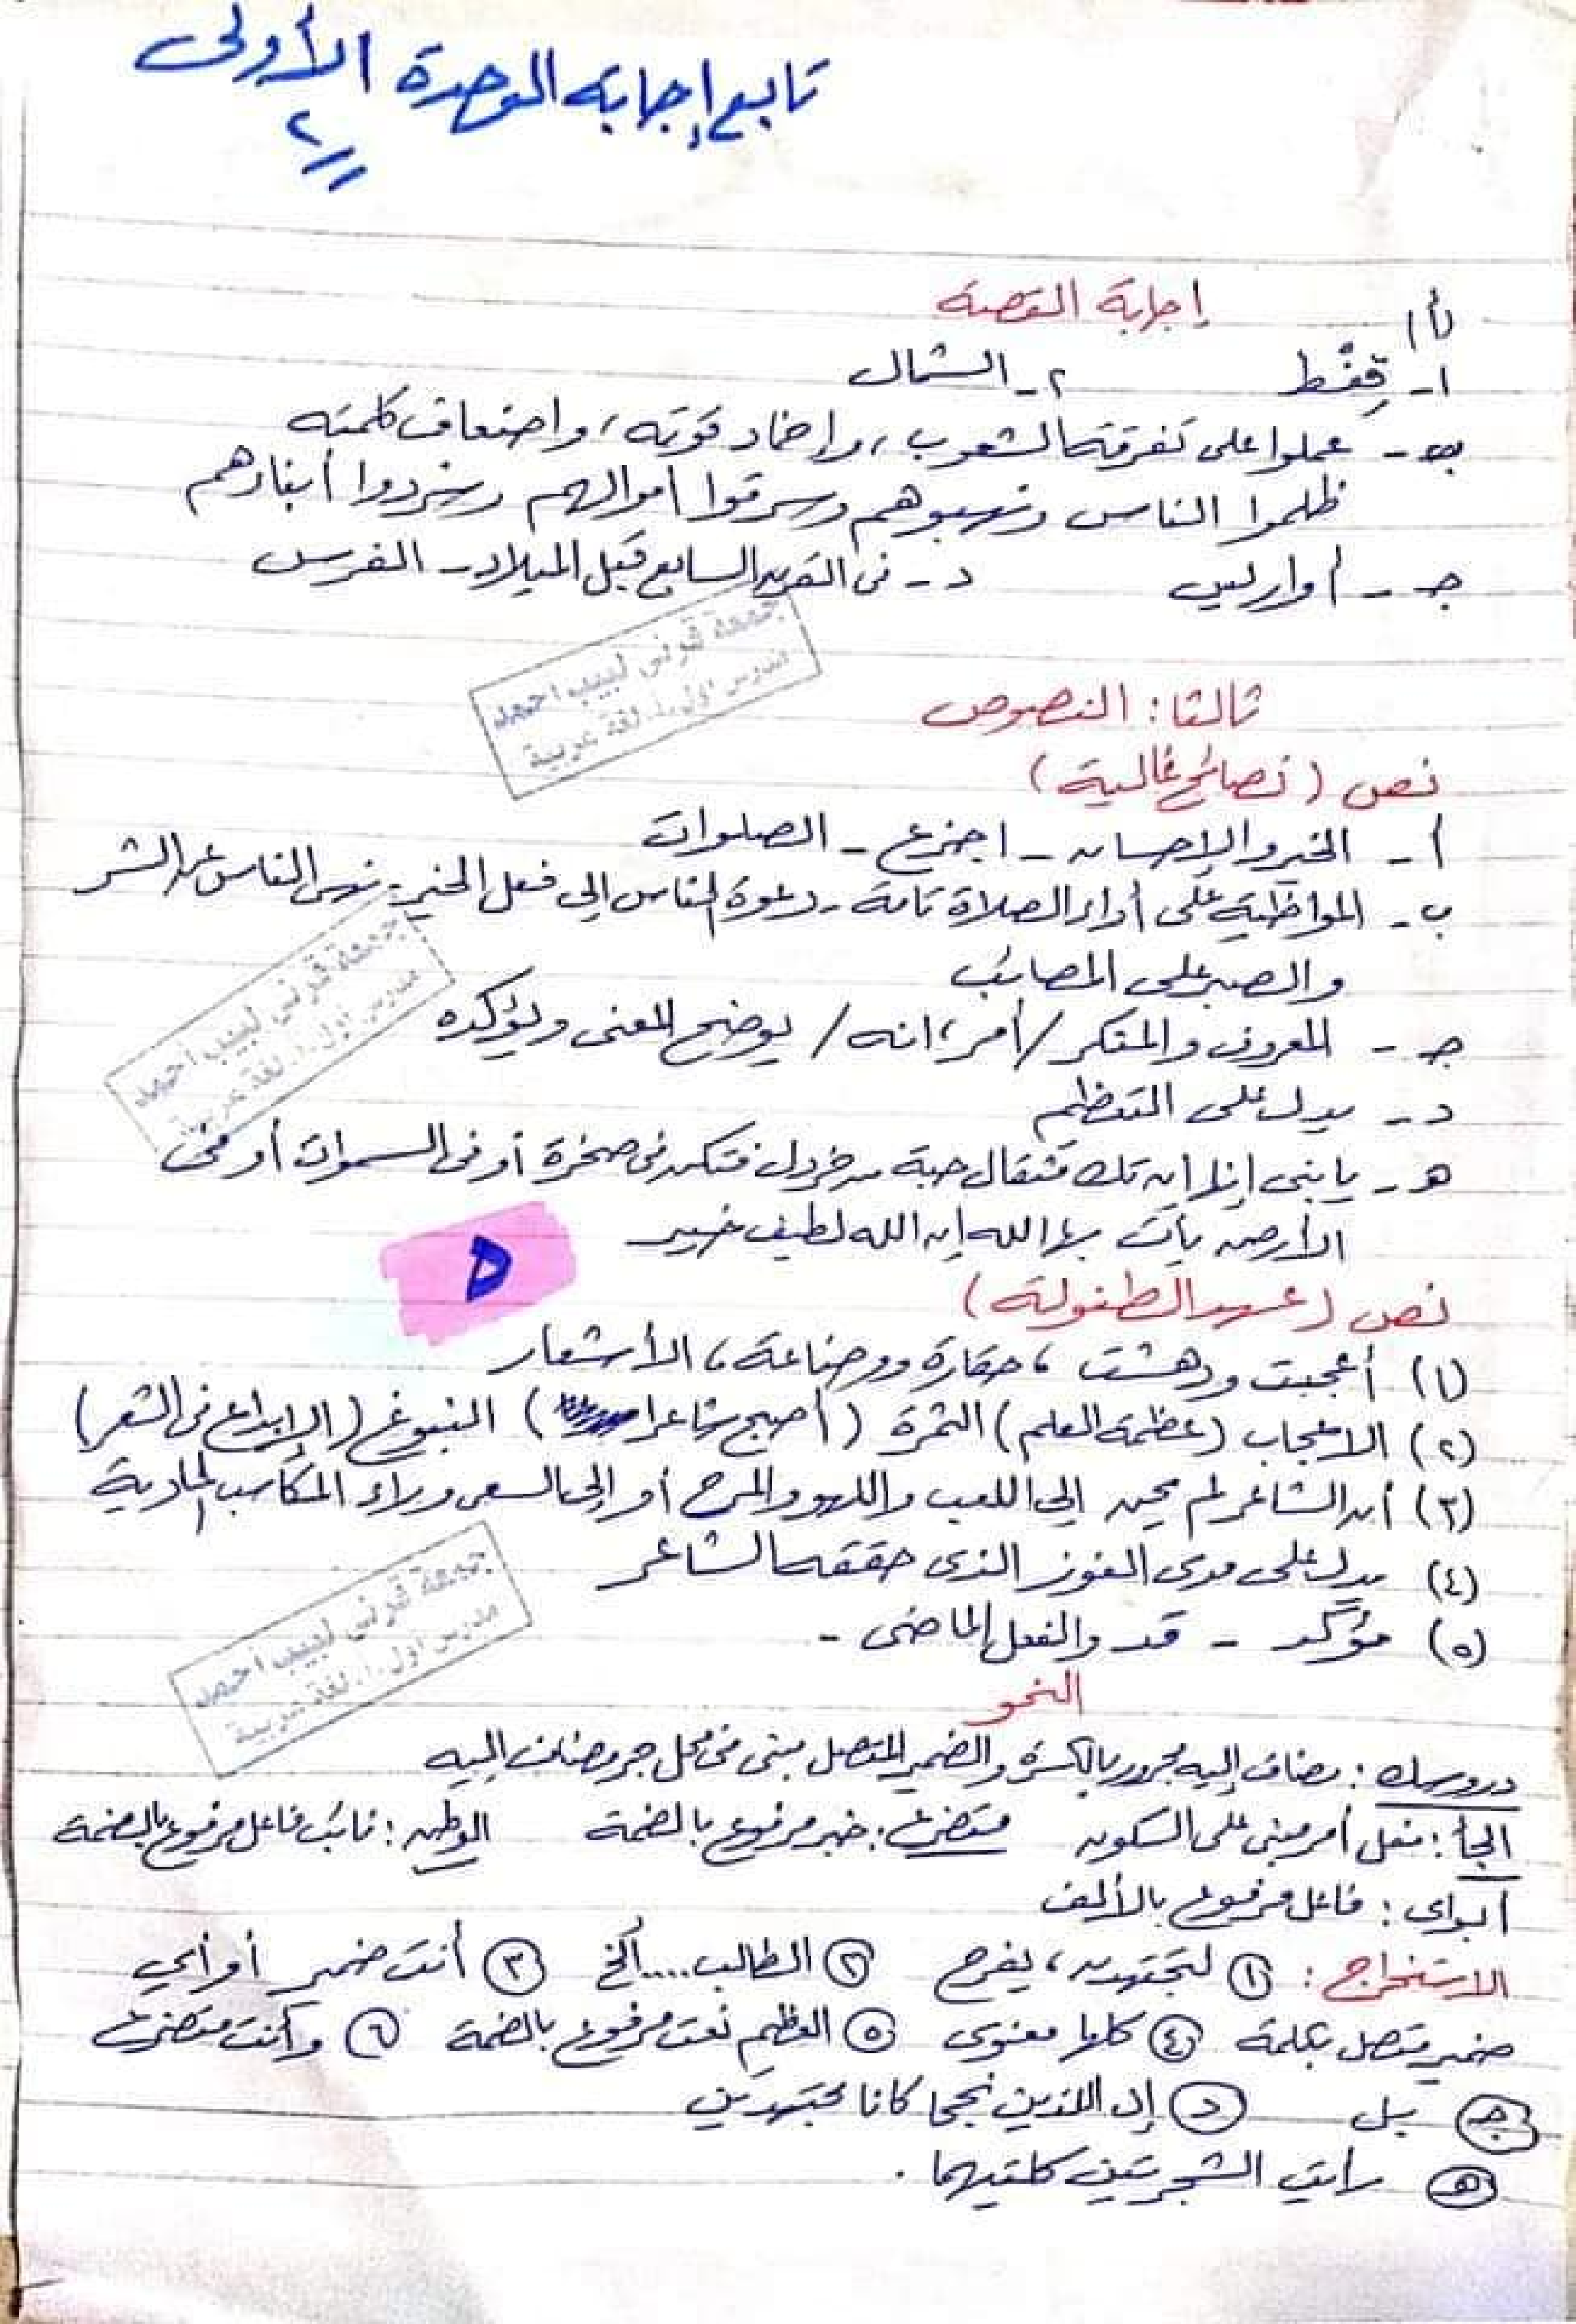 تابع إجابة الوحدة الأولى
٢
إجابة القصة
أ/
١- قِفْط ٢- الشمال
ب- عملوا على تفرقة الشعوب، وإخماد قوته، وإضعاف كلمته
ظلموا الناس ونهبوهم وسرقوا أموالهم وشردوا أبناءهم
جـ - أواريس د - فى القرن السابع قبل الميلاد - الفرس
جمعه قرنى لبيب احمد
مدرس اول.ا. لغة عربية
ثالثا: النصوص
نص (نصائح غالية)
أ - الخير والإحسان - اجزع - الصلوات
ب - المواظبة على أداء الصلاة تامة - دعوة الناس إلى فعل الخير - نهى الناس عن الشر
والصبر على المصائب
جمعه قرنى لبيب احمد
مدرس اول.ا. لغة عربية
جـ - المعروف والمنكر / أمر، انه / يوضح المعنى ويؤكده
د - يدل على التعظيم
هـ - يا بنى إنها إن تك مثقال حبة من خردل فتكن فى صخرة أو فى السموات أو فى
الأرض يأت بها الله إن الله لطيف خبير
٥
نص (عهد الطفولة)
(١) أعجبت ودهشت، حقارة ووضاعة، الأشعار
(٢) الاعجاب (عظمة العلم) الثمرة (أصبح شاعرا) النبوغ (الإبداع فى الشعر)
(٣) أن الشاعر لم يحن إلى اللعب واللهو والمرح أو إلى السعى وراء المكاسب المادية
(٤) يدل على مدى الفوز الذى حققه الشاعر
(٥) مؤكد - قد والفعل الماضى -
جمعه قرنى لبيب احمد
مدرس اول.ا. لغة عربية
النحو
دروسك: مضاف إليه مجرور بالكسرة والضمير المتصل مبنى فى محل جر مضاف إليه
الجأ: فعل أمر مبنى على السكون متضرع: خبر مرفوع بالضمة الوطن: نائب فاعل مرفوع بالضمة
أبواى: فاعل مرفوع بالألف
الاستخراج: ١ لتجتهدن، يفرح ٢ الطالب.... ألخ ٣ أنت ضمير أو أي
ضمير متصل بكلمة ٤ كلها معنوى ٥ العظيم نعت مرفوع بالضمة ٦ وأنت متضرع
جـ بل د إن اللذين نجحا كانا مجتهدين
هـ رأيت الشجرتين كلتيهما.